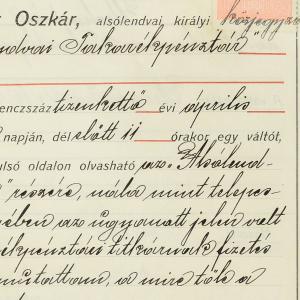 Oszkár, alsólendvai, királyi közjegyző
ndvai Takarékpénztár"
enczszáz tizenkettő évi április
napján, dél előtt 11 órakor egy váltót,
ulsó oldalon olvasható az „Alsólend-
" részére, nála mint telepes-
ében az ugyanott jelen volt
ékpénztári titkárnak fizetés
mutattam, a mire tőle a